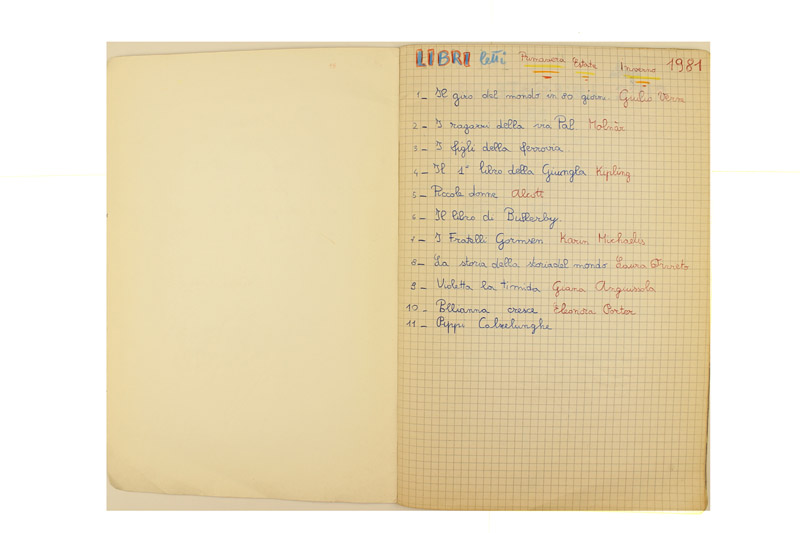 LIBRI letti Primavera Estate Inverno 1981
1_ Il giro del mondo in 80 giorni Giulio Verne
2_ I ragazzi della via Pal Molnár
3_ I figli della ferrovia
4_ Il 1° libro della Giungla Kipling
5_ Piccole donne Alcott
6_ Il libro di Bullerby.
7_ I Fratelli Gormsen Karin Michaelis
8_ La storia della storia del mondo Laura Orvieto
9_ Violetta la timida Giana Anguissola
10_ Pollianna cresce Eleonora Porter
11_ Pippi Calzelunghe